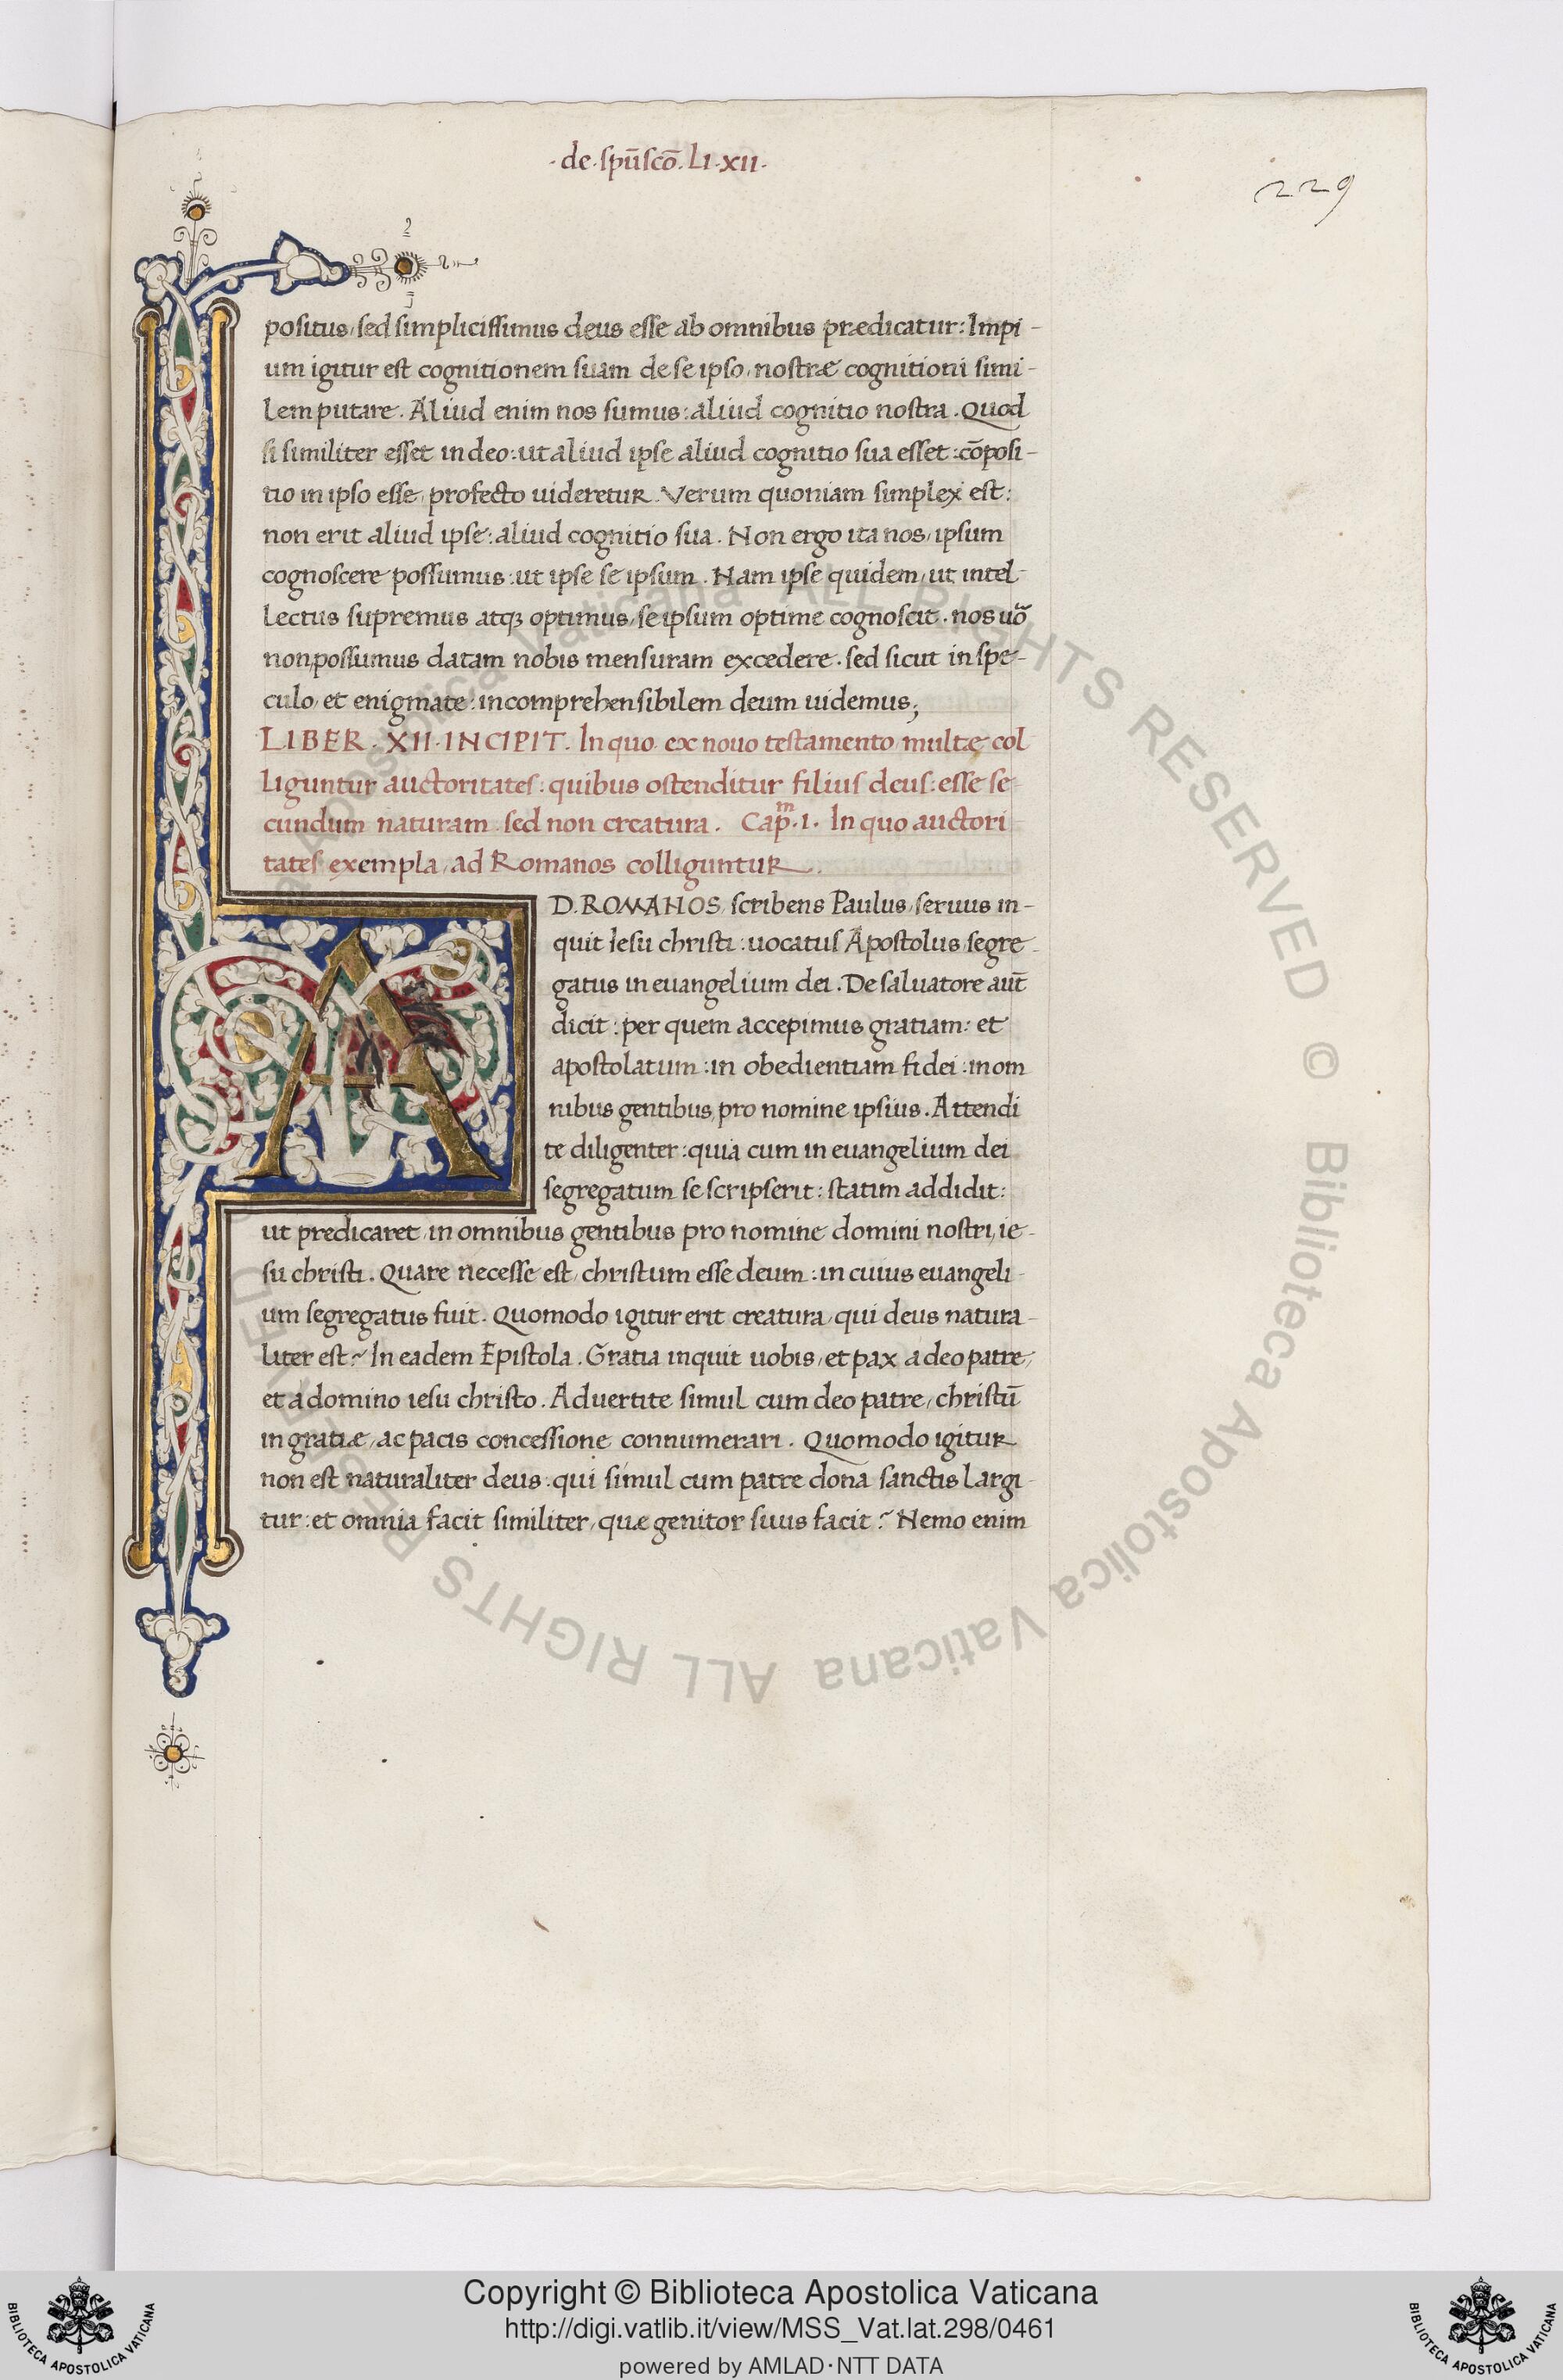 ·de·spūscō·LI·XII·
229
positus, sed simplicissimus deus esse ab omnibus prædicatur: Impi-
um igitur est cognitionem suam de se ipso, nostræ cognitioni simi-
lem putare. Aliud enim nos sumus: aliud cognitio nostra. Quod
si similiter esset in deo: ut aliud ipse aliud cognitio sua esset: cōposi-
tio in ipso esse, profecto uideretur. Verum quoniam simplex est:
non erit aliud ipse: aliud cognitio sua. Non ergo ita nos, ipsum
cognoscere possumus: ut ipse se ipsum. Nam ipse quidem, ut intel-
lectus supremus atqꝫ optimus, se ipsum optime cognoscit. nos uõ
non possumus datam nobis mensuram excedere. sed sicut in spe-
culo, et enigmate: incomprehensibilem deum uidemus;
LIBER. XII. INCIPIT. In quo ex nouo testamento multæ col
liguntur auctoritates: quibus ostenditur filius deus: esse se-
cundum naturam. sed non creatura. Cap̄ᵐ.1. In quo auctori
tates exempla, ad Romanos colliguntur.
AD. ROMANOS, scribens Paulus, seruus in-
quit Iesu christi: uocatus Apostolus, segre-
gatus in euangelium dei. De saluatore aut̄
dicit: per quem accepimus gratiam: et
apostolatum: in obedientiam fidei: in om
nibus gentibus, pro nomine ipsius. Attendi
te diligenter: quia cum in euangelium dei
segregatum se scripserit: statim addidit:
ut predicaret, in omnibus gentibus pro nomine domini nostri, ie-
su christi. Quare necesse est, christum esse deum: in cuius euangeli-
um segregatus fuit. Quomodo igitur erit creatura, qui deus natura-
liter est? In eadem Epistola. Gratia inquit uobis, et pax a deo patre,
et a domino iesu christo. Aduertite simul cum deo patre, christū
in gratiæ, ac pacis concessione connumerari. Quomodo igitur
non est naturaliter deus: qui simul cum patre dona sanctis largi-
tur: et omnia facit similiter, quæ genitor suus facit? Nemo enim
Biblioteca Apostolica Vaticana ALL RIGHTS RESERVED ©
Copyright © Biblioteca Apostolica Vaticana
http://digi.vatlib.it/view/MSS_Vat.lat.298/0461
powered by AMLAD·NTT DATA
BIBLIOTECA APOSTOLICA VATICANA
BIBLIOTECA APOSTOLICA VATICANA